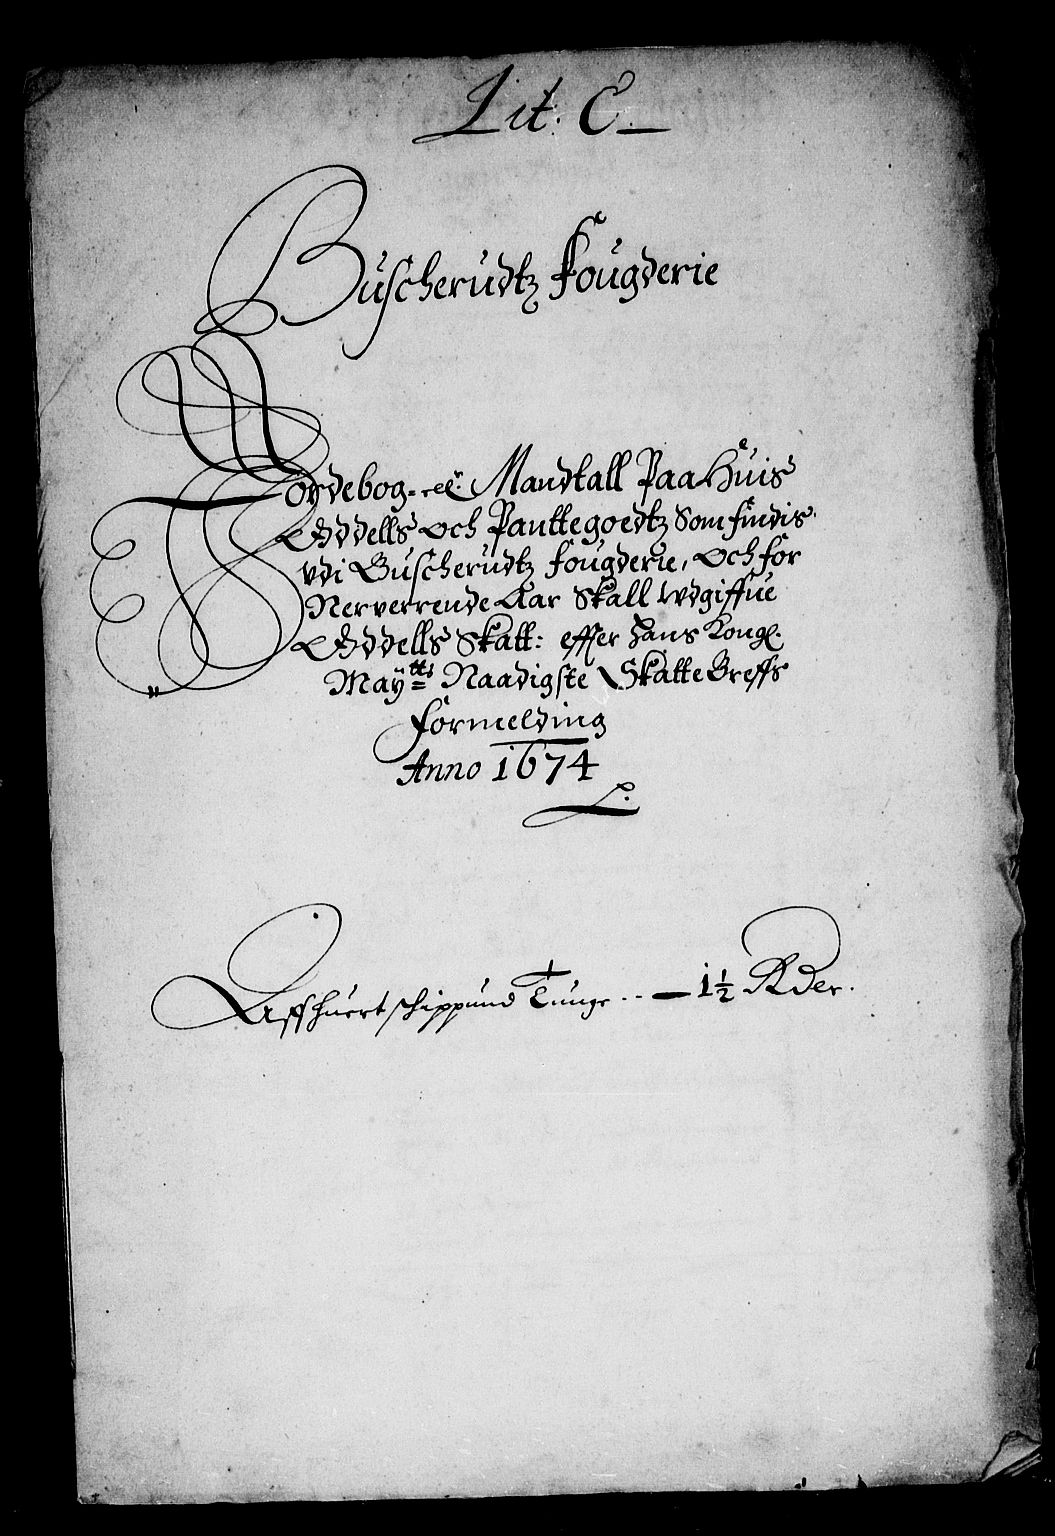 Lit: C.
Buscherudtz fougderie
Jordebog Mandtall Paa Huis
Oddells och Panttegoedtz Som findis
vdi Buscherudtz fougderie, och for
Nerverrende Aar Skall wdgiffue
Oddells Skatt: effter hans Kongl.
Maÿtts Naadigste Skatte Breffs
formelding
Anno 1674
Aff huert schippund Tunge .. — 1½ Rder.